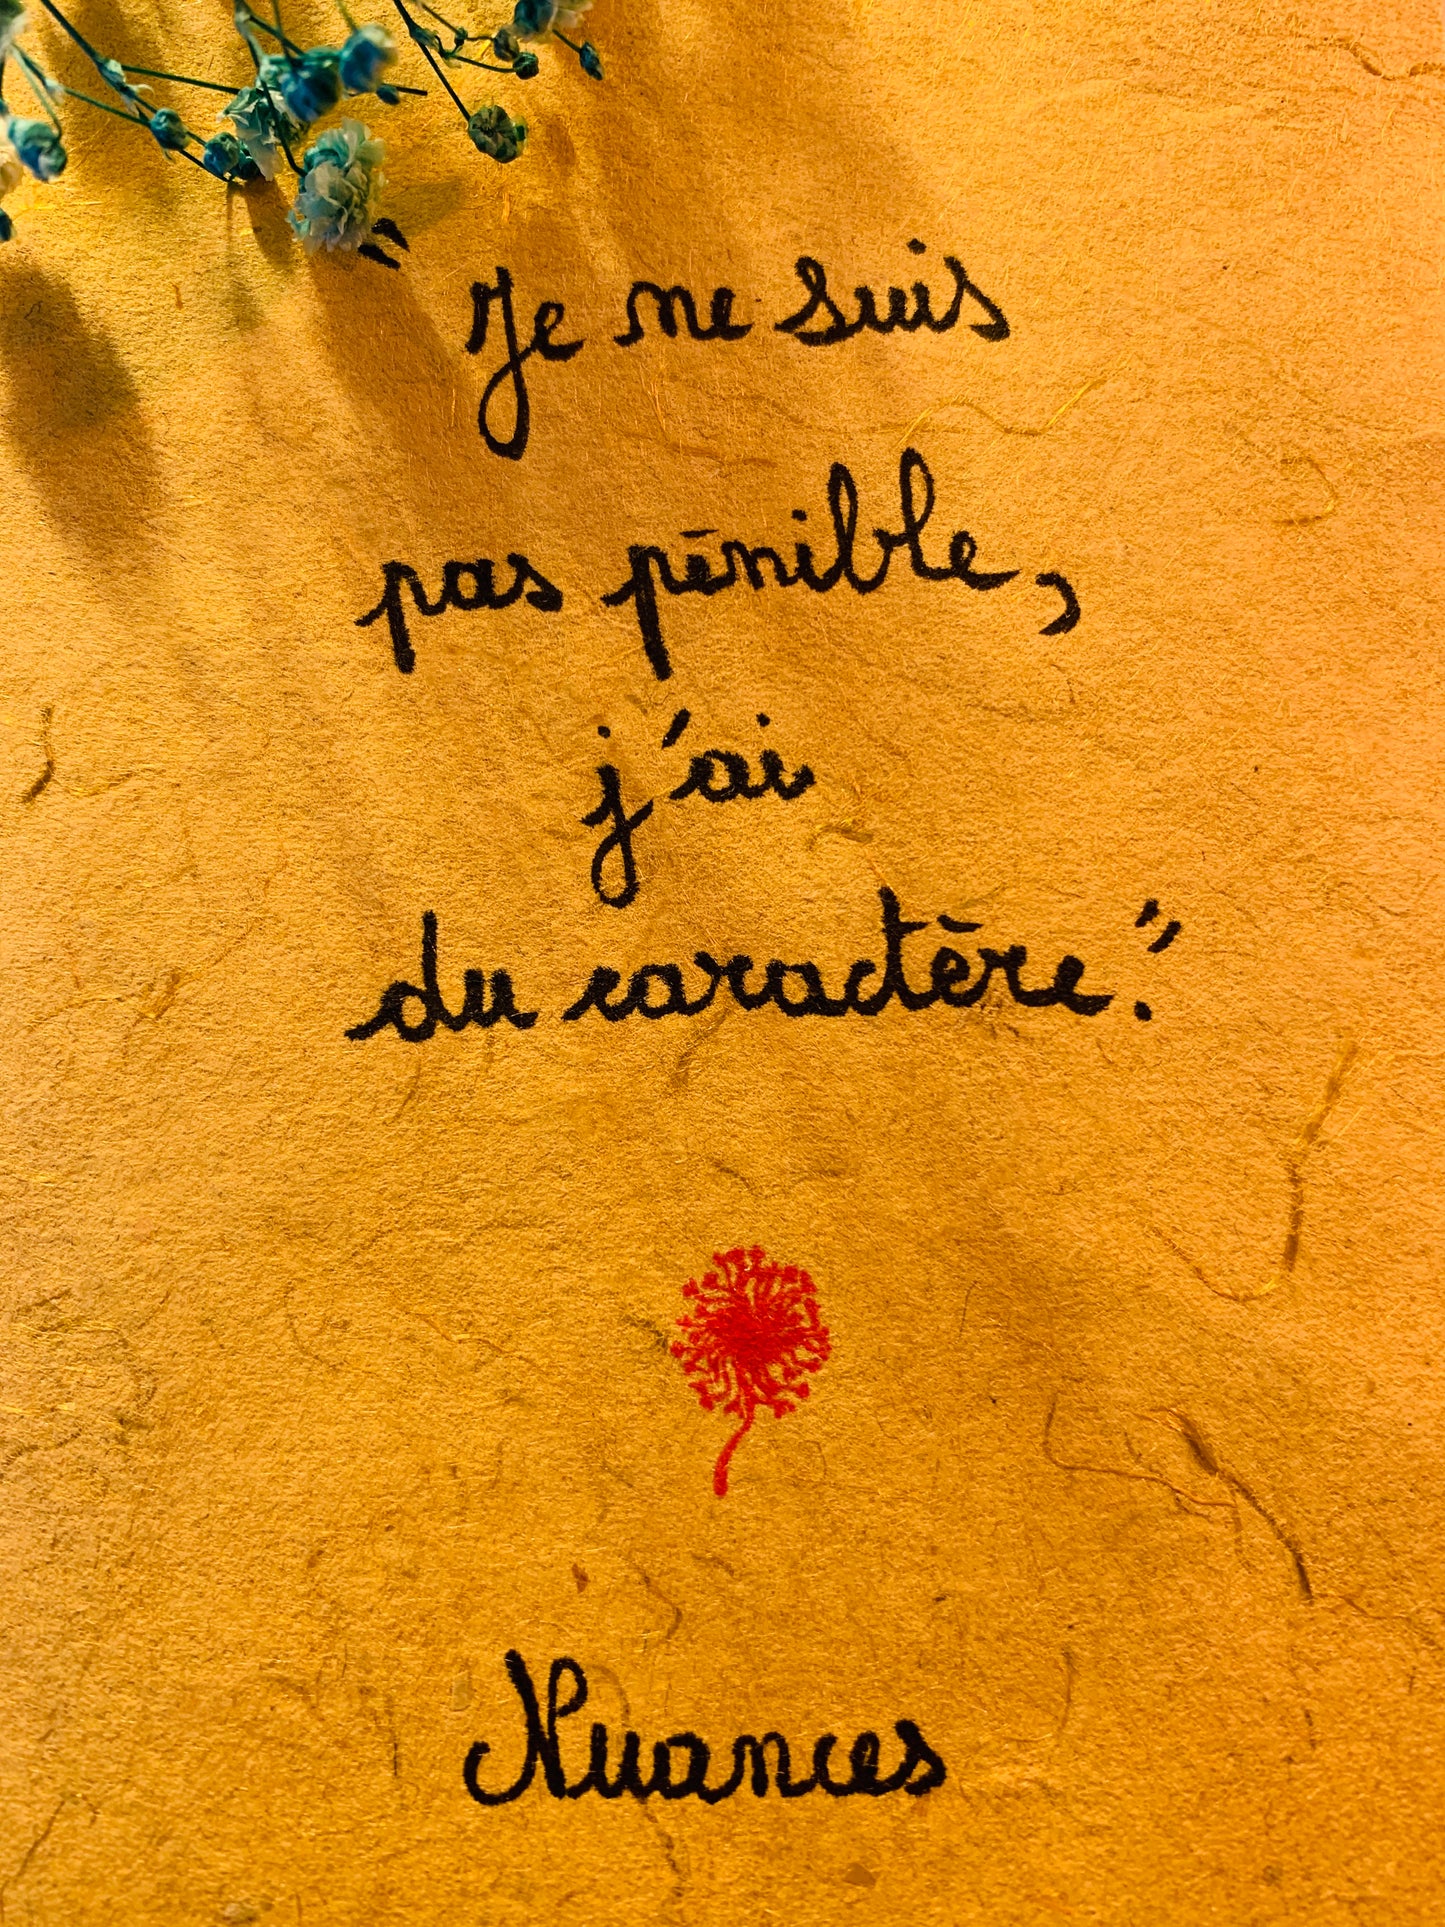 "Je ne suis
pas pénible,
j'ai
du caractère."
Nuances